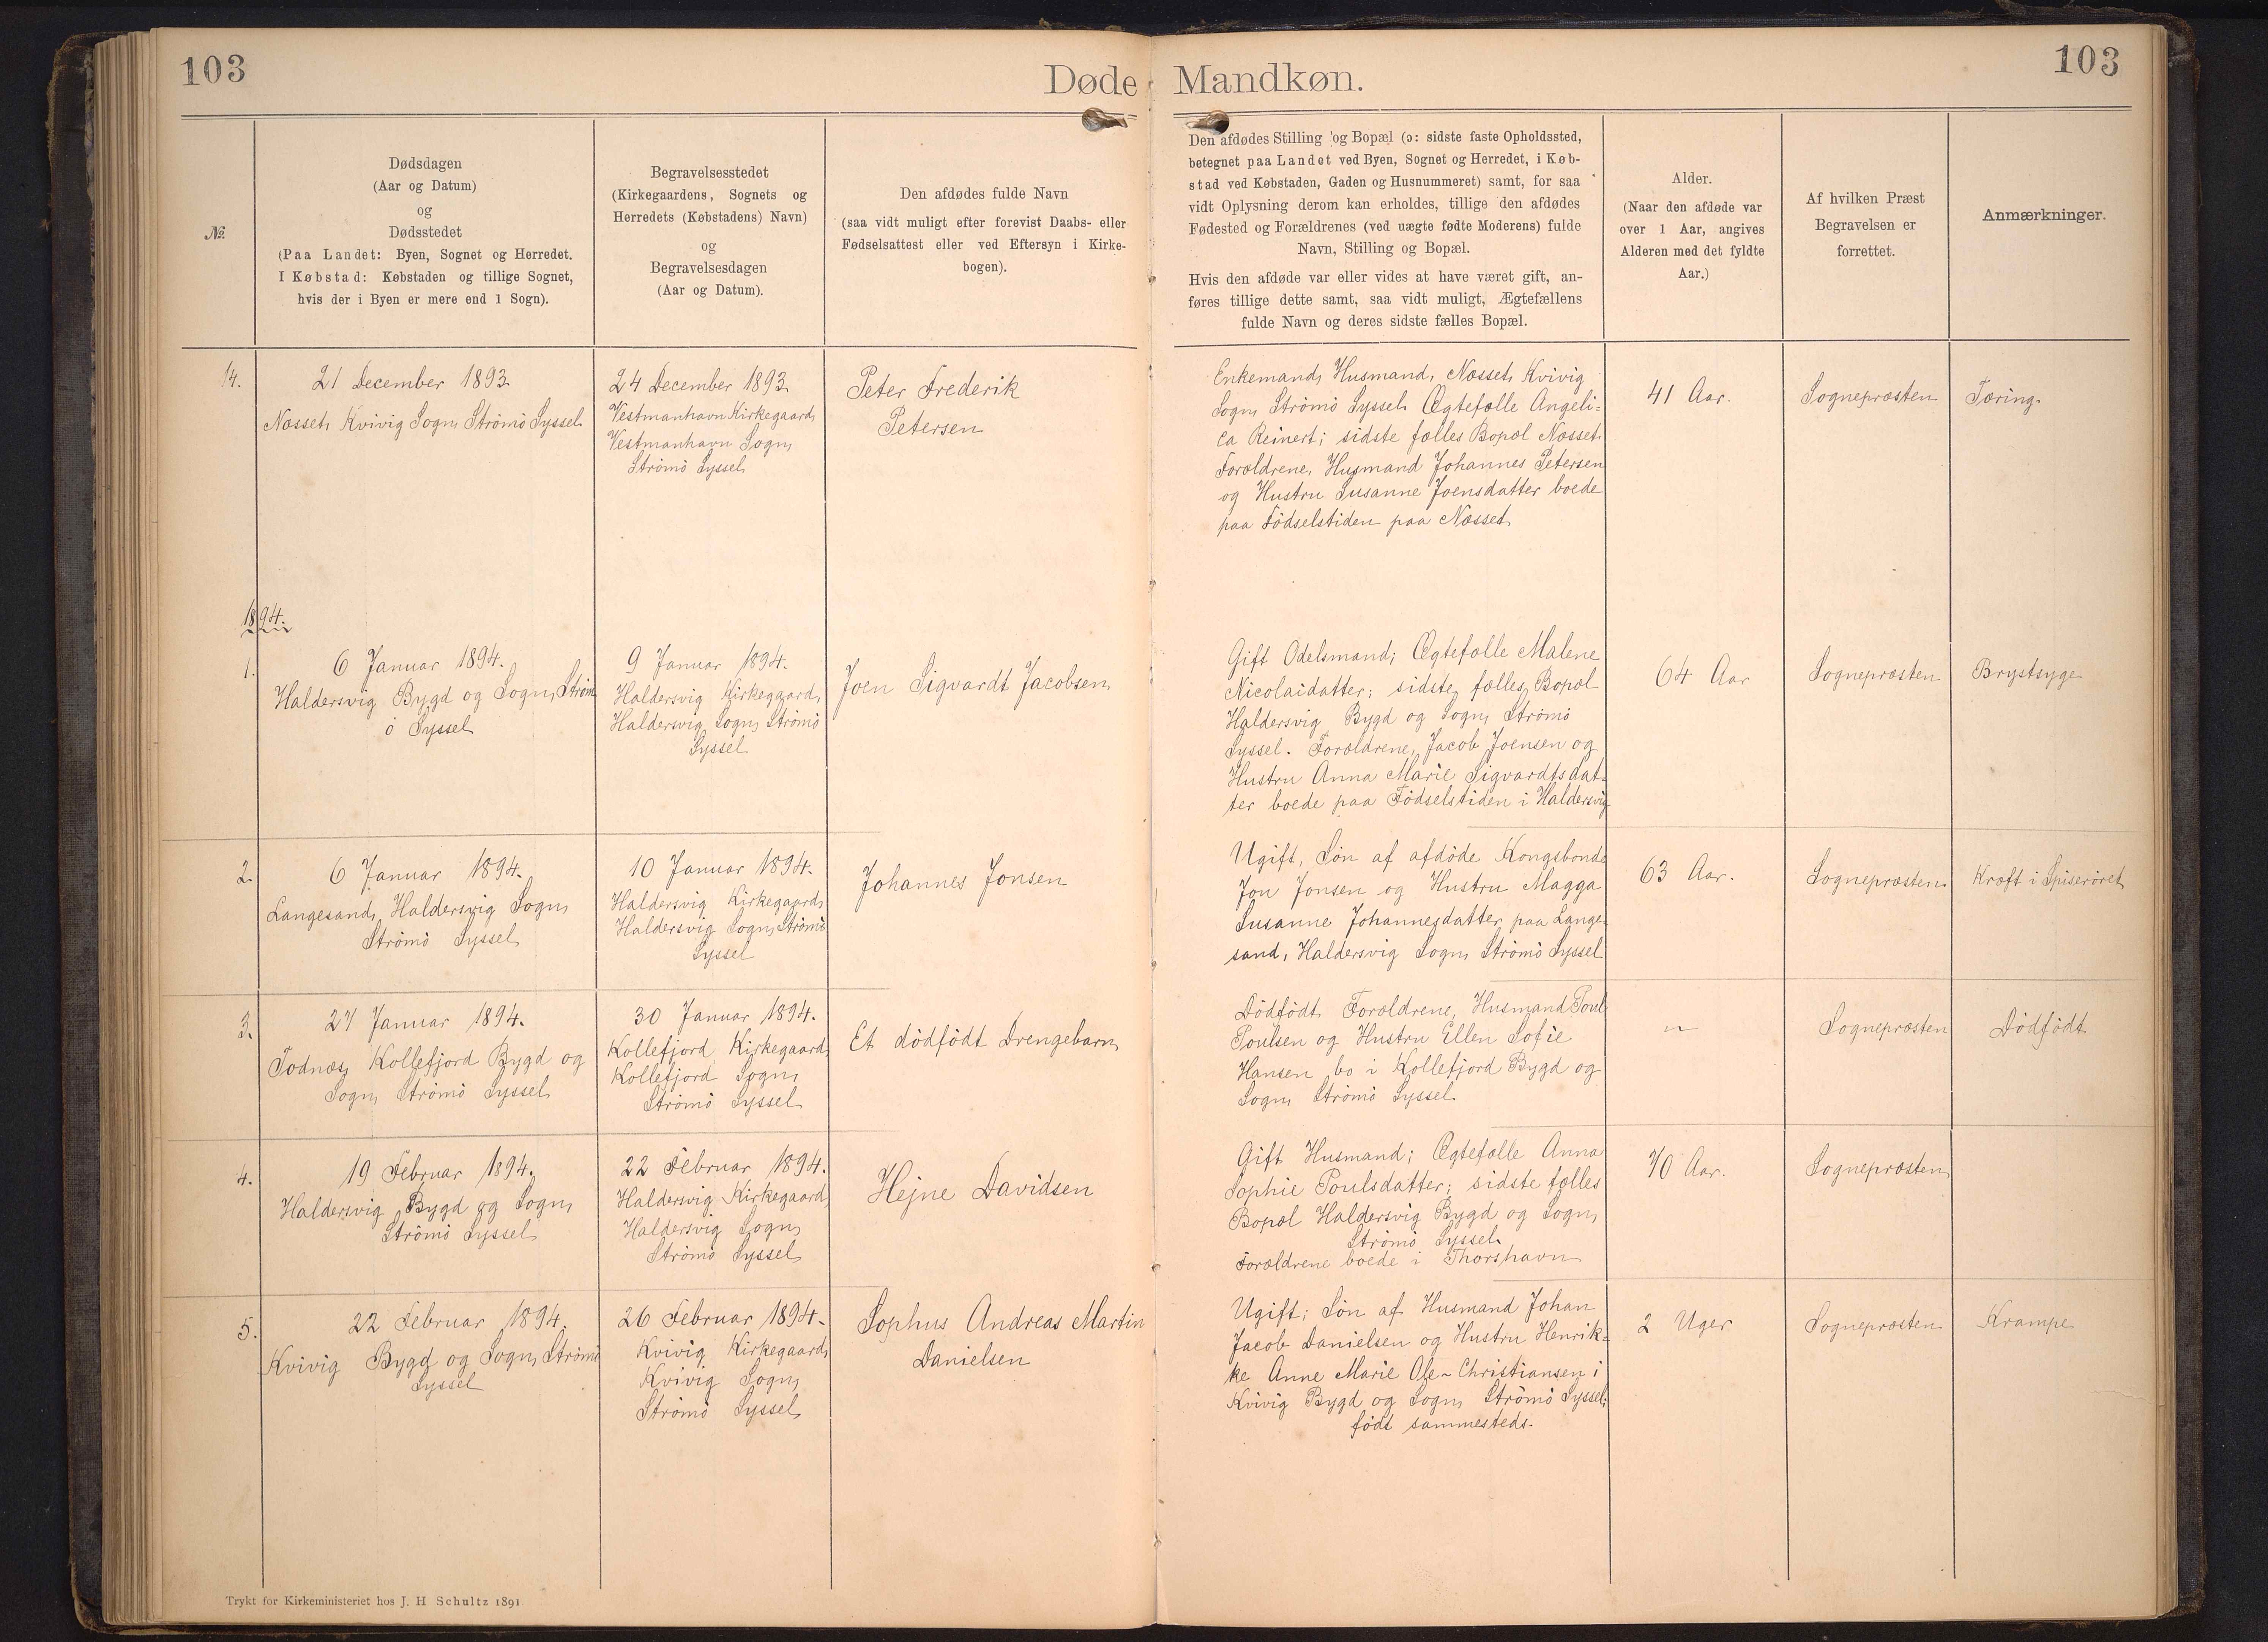 103
Døde Mandkøn.
103
№.
Dødsdagen
(Aar og Datum)
og
Dødsstedet
(Paa Landet: Byen, Sognet og Herredet.
I Købstad: Købstaden og tillige Sognet,
hvis der i Byen er mere end 1 Sogn).
Begravelsesstedet
(Kirkegaardens, Sognets og
Herredets (Købstadens) Navn)
og
Begravelsesdagen
(Aar og Datum).
Den afdødes fulde Navn
(saa vidt muligt efter forevist Daabs- eller
Fødselsattest eller ved Eftersyn i Kirke-
bogen).
Den afdødes Stilling og Bopæl (ɔ: sidste faste Opholdssted,
betegnet paa Landet ved Byen, Sognet og Herredet, i Køb-
stad ved Købstaden, Gaden og Husnummeret) samt, for saa
vidt Oplysning derom kan erholdes, tillige den afdødes
Fødested og Forældrenes (ved uægte fødte Moderens) fulde
Navn, Stilling og Bopæl.
Hvis den afdøde var eller vides at have været gift, an-
føres tillige dette samt, saa vidt muligt, Ægtefællens
fulde Navn og deres sidste fælles Bopæl.
Alder.
(Naar den afdøde var
over 1 Aar, angives
Alderen med det fyldte
Aar.)
Af hvilken Præst
Begravelsen er
forrettet.
Anmærkninger.
14.
21 December 1893.
Næsset, Kvivig Sogn, Strömö Syssel.
24 December 1893.
Vestmanhavn Kirkegaard,
Vestmanhavn Sogn,
Strömö Syssel,
Peter Frederik
Petersen
Enkemand, Husmand, Næsset, Kvivig
Sogn, Strömö Syssel. Ægtefælle Angeli-
ca Reinert; sidste fælles Bopæl Næsset.
Forældrene, Husmand Johannes Petersen
og Hustru Susanne Joensdatter boede
paa Födselstiden paa Næsset
41 Aar.
Sognepræsten
Tæring.
1894.
1.
6 Januar 1894.
Haldersvig Bygd og Sogn, Ström
ö Syssel
9 Januar 1894.
Haldersvig Kirkegaard,
Haldersvig Sogn, Strömö
Syssel
Joen Sigvardt Jacobsen
Gift Odelsmand; Ægtefælle Malene
Nicolaidatter; sidste fælles Bopæl
Haldersvig Bygd og Sogn, Strömö
Syssel. Forældrene, Jacob Joensen og
Hustru Anna Marie Sigvardtsdat-
ter boede paa Födselstiden i Haldersvig
64 Aar
Sognepræsten
Brystsyge
2.
6 Januar 1894.
Langesand, Haldersvig Sogn,
Strömö Syssel
10 Januar 1894.
Haldersvig Kirkegaard,
Haldersvig Sogn, Strömö
Syssel
Johannes Jonsen
Ugift, Sön af afdöde Kongsbonde
Jon Jonsen og Hustru Magga
Susanne Johannesdatter paa Lange-
sand, Haldersvig Sogn, Strömö Syssel
63 Aar.
Sognepræsten
Kræft i Spiseröret
3.
27 Januar 1894.
Todnæs, Kollefjord Bygd og
Sogn, Strömö Syssel
30 Januar 1894.
Kollefjord Kirkegaard,
Kollefjord Sogn,
Strömö Syssel
Et dödfödt Drengebarn
Dödfödt Forældrene, Husmand Poul
Poulsen og Hustru Ellen Sofie
Hansen bo i Kollefjord Bygd og
Sogn, Strömö Syssel.
~
Sognepræsten
Dödfödt
4.
19 Februar 1894.
Haldersvig Bygd og Sogn,
Strömö Syssel
22 Februar 1894.
Haldersvig Kirkegaard,
Haldersvig Sogn,
Strömö Syssel
Hejne Davidsen
Gift Husmand; Ægtefælle Anna
Sophie Poulsdatter; sidste fælles
Bopæl Haldersvig Bygd og Sogn,
Strömö Syssel.
Forældrene boede i Thorshavn
70 Aar.
Sognepræsten
5.
22 Februar 1894.
Kvivig Bygd og Sogn, Strömö
Syssel
26 Februar 1894.
Kvivig Kirkegaard,
Kvivig Sogn,
Strömö Syssel
Sophus Andreas Martin
Danielsen
Ugift; Sön af Husmand Johan
Jacob Danielsen og Hustru Henrik-
ke Anne Marie Ole-Christiansen i
Kvivig Bygd og Sogn, Strömö Syssel;
födt sammesteds.
2 Uger
Sognepræsten
Krampe
Trykt for Kirkeministeriet hos J. H Schultz 1891